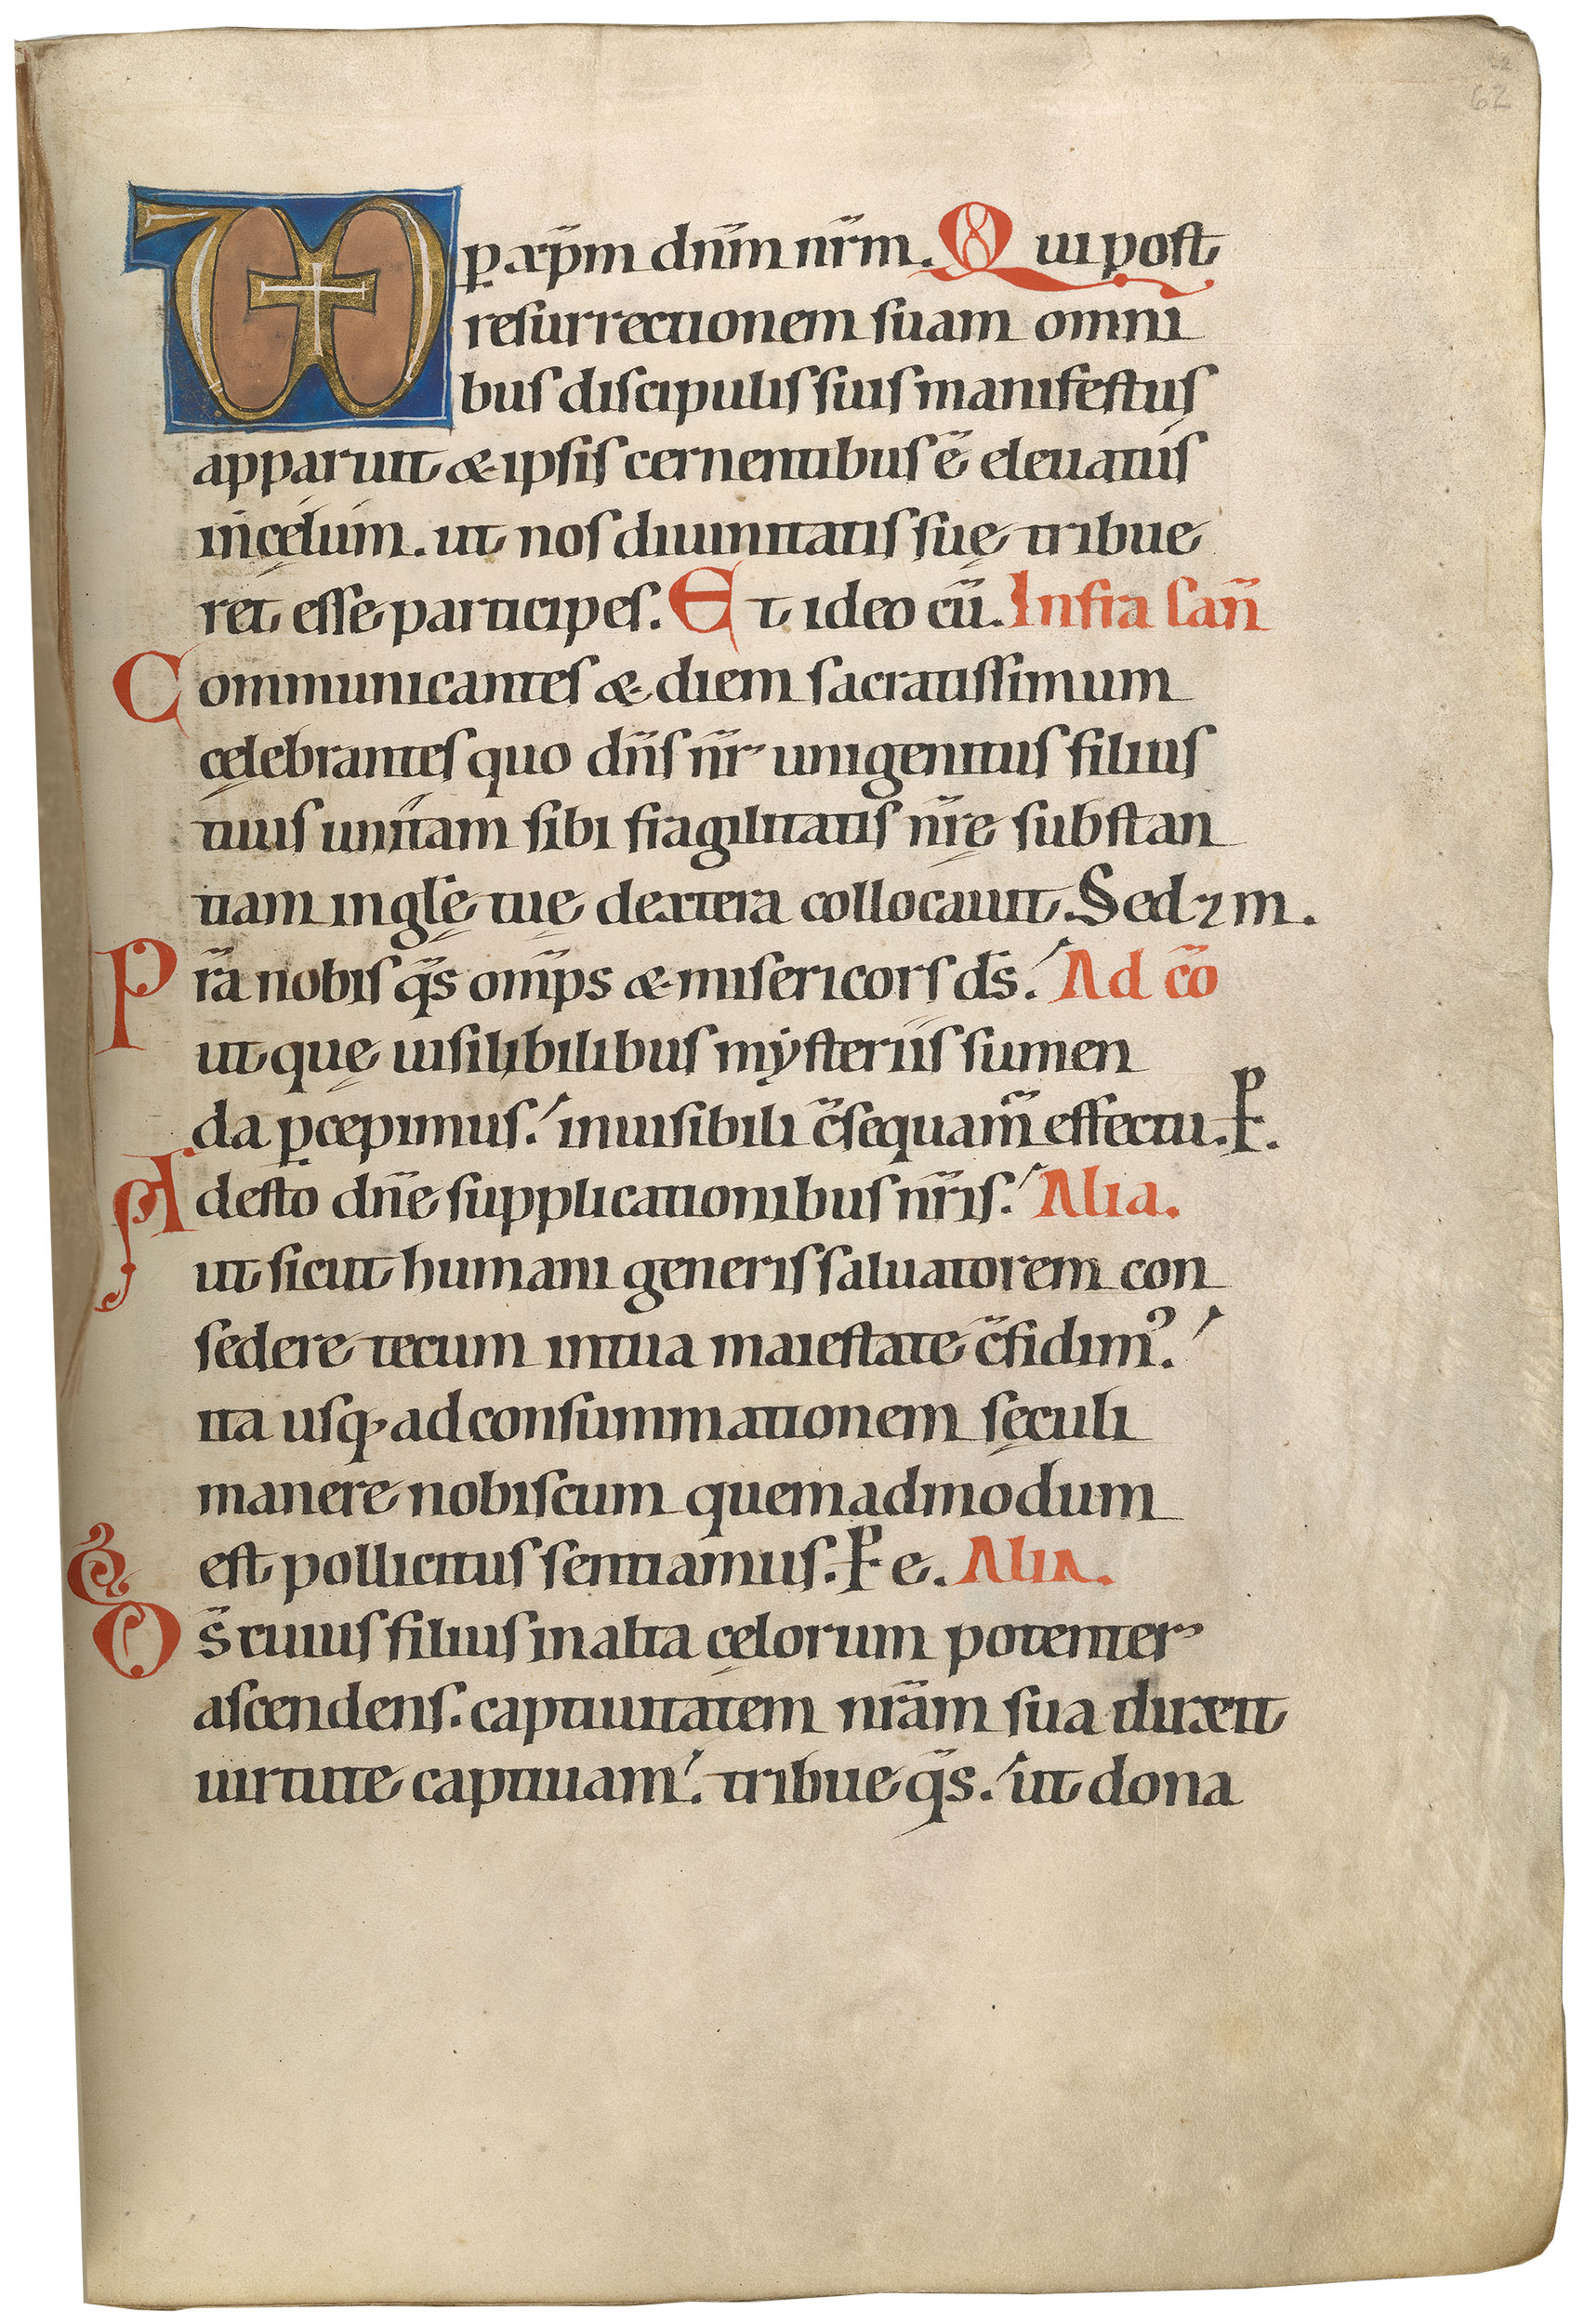 62
p̲ xp̄m dn̄m nr̄m. Qui post
resurrectionem suam omni
bus discipulis suis manifestus
apparuit & ipsis cernentibus ē eleuatus
in cęlum. ut nos diuinitatis suę tribue
ret esse participes. Et ideo cū. Infra can̄
Communicantes & diem sacratissimum
cęlebrantes quo dn̄s nr̄ unigenitus filius
tuus unitam sibi fragilitatis nr̄ę substan
tiam in gl̄ę tuę dextera collocauit. Sed ⁊ m.
Pr̄a nobis q̄s om̄ps & misericors ds̄. Ad cō
ut quę uisilibilibus mẏsteriis sumen
da p̲cepimus. inuisibili c̄sequam̄ effectu. P.
Adesto dn̄e supplicationibus nr̄is. Alia.
ut sicut humani generis saluatorem con
sedere tecum in tua maiestate c̄fidim᾿.
ita usq; ad consummationem sęculi
manere nobiscum quemadmodum
est pollicitus sentiamus. P e. Alia.
Ds̄ cuius filius in alta cęlorum potenter
ascendens. captiuitatem nr̄am sua duxit
uirtute captiuam. tribue q̄s. ut dona